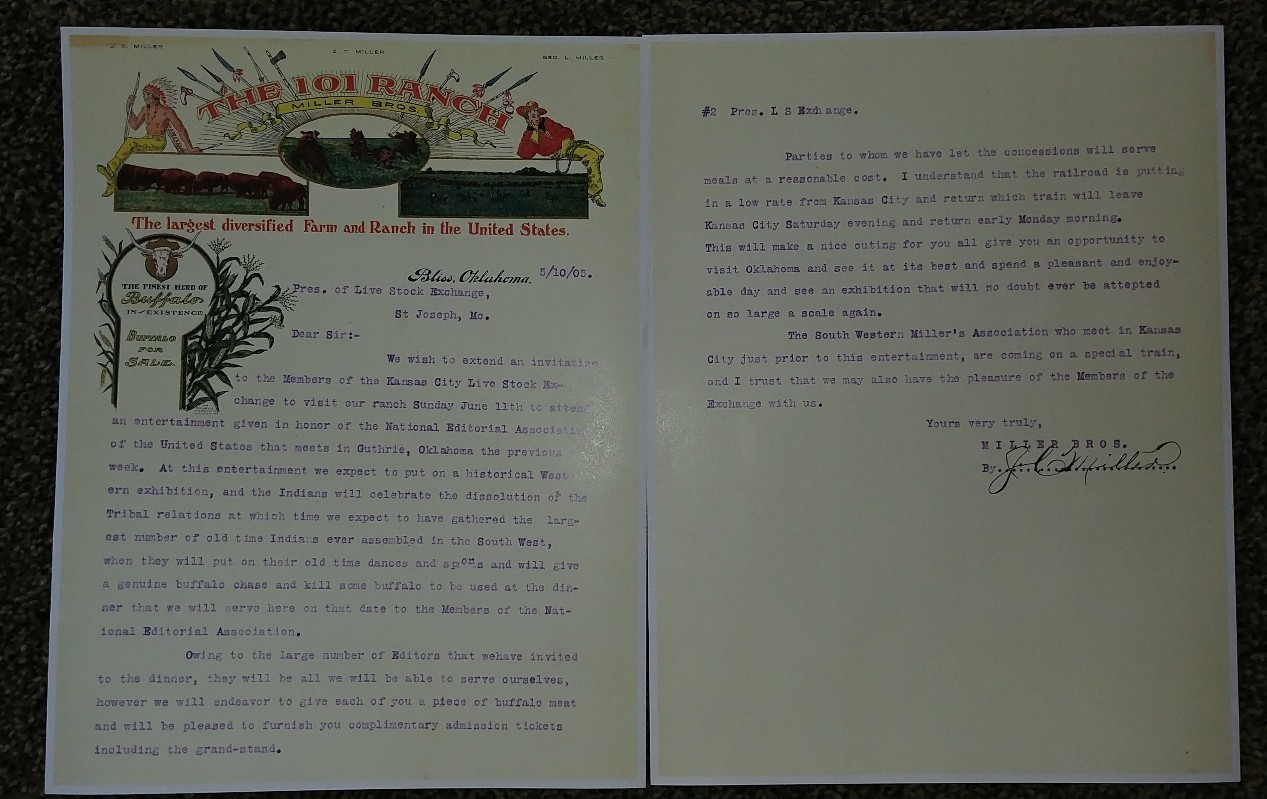 J. C. MILLER
Z. T. MILLER
GEO. L. MILLER
THE 101 RANCH
MILLER BROS.
The largest diversified Farm and Ranch in the United States.
THE FINEST HERD OF
Buffalo
IN EXISTENCE
BUFFALO
FOR
SALE.
Bliss, Oklahoma. 5/10/05.
Pres. of Live Stock Exchange,
St Joseph, Mo.
Dear Sir:-
We wish to extend an invitation
to the Members of the Kansas City Live Stock Ex-
change to visit our ranch Sunday June 11th to attend
an entertainment given in honor of the National Editorial Association
of the United States that meets in Guthrie, Oklahoma the previous
week. At this entertainment we expect to put on a historical West-
ern exhibition, and the Indians will celebrate the dissolution of the
Tribal relations at which time we expect to have gathered the larg-
est number of old time Indians ever assembled in the South West,
when they will put on their old time dances and sports and will give
a genuine buffalo chase and kill some buffalo to be used at the din-
ner that we will serve here on that date to the Members of the Nat-
ional Editorial Association.
Owing to the large number of Editors that wehave invited
to the dinner, they will be all we will be able to serve ourselves,
however we will endeavor to give each of you a piece of buffalo meat
and will be pleased to furnish you complimentary admission tickets
including the grand-stand.
#2 Pres. L S Exchange.
Parties to whom we have let the concessions will serve
meals at a reasonable cost. I understand that the railroad is putting
in a low rate from Kansas City and return which train will leave
Kansas City Saturday evening and return early Monday morning.
This will make a nice outing for you all give you an opportunity to
visit Oklahoma and see it at its best and spend a pleasant and enjoy-
able day and see an exhibition that will no doubt ever be attepted
on so large a scale again.
The South Western Miller's Association who meet in Kansas
City just prior to this entertainment, are coming on a special train,
and I trust that we may also have the pleasure of the Members of the
Exchange with us.
Yours very truly,
MILLER BROS.
By. J. C. Miller